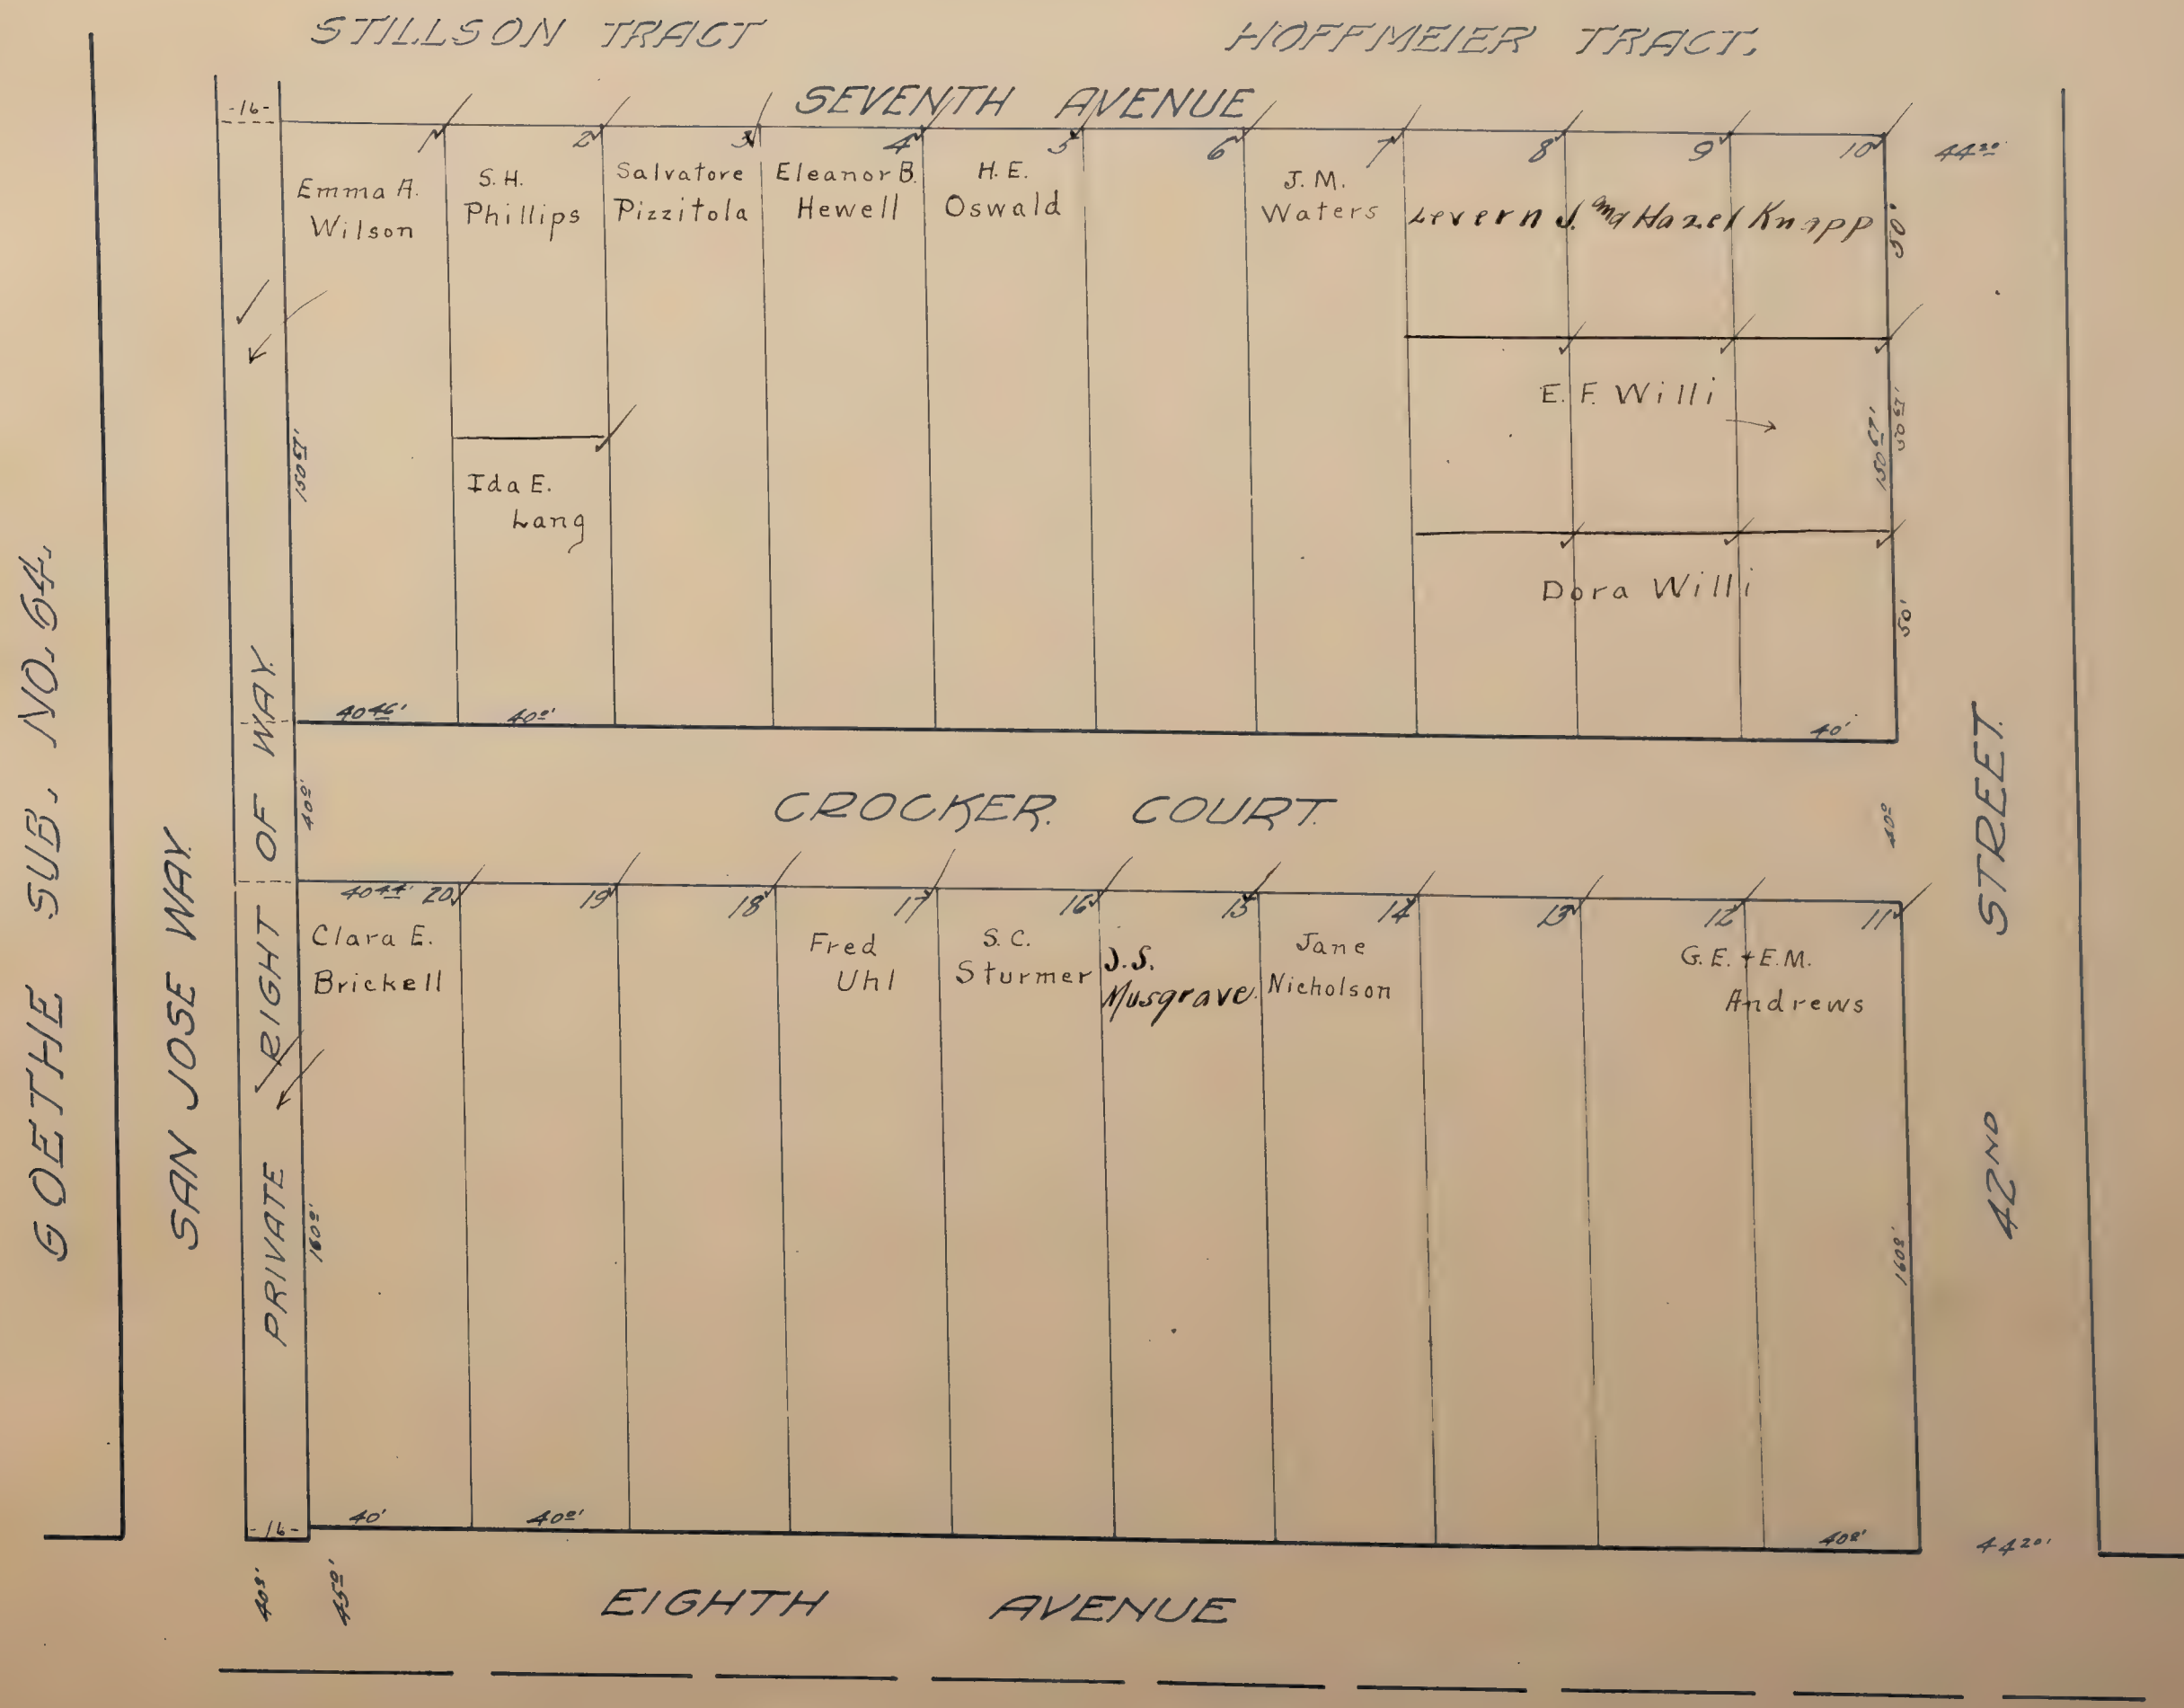 STILLSON TRACT
HOFFMEIER TRACT.
SEVENTH AVENUE
-16-
1
2
3
4
5
6
7
8
9
10
44 20'
Emma A.
Wilson
S. H.
Phillips
Salvatore
Pizzitola
Eleanor B.
Hewell
H. E.
Oswald
J. M.
Waters
Levern J. and Hazel Knapp
50'
E. F. Willi
150 67'
50 67'
150 67'
Ida E.
Lang
Dora Willi
50'
40 46'
40 0'
40'
GOETHE SUB. NO. 64.
SAN JOSE WAY.
PRIVATE RIGHT OF WAY.
40 0'
CROCKER. COURT.
40 0
42ND STREET.
40 44'
20
19
18
17
16
15
14
13
12
11
Clara E.
Brickell
Fred
Uhl
S. C.
Sturmer
J.S.
Musgrave.
Jane
Nicholson
G. E. + E.M.
Andrews
160 0'
160 0'
-16-
40'
40 0'
40 0'
44 20'
45 0'
EIGHTH AVENUE